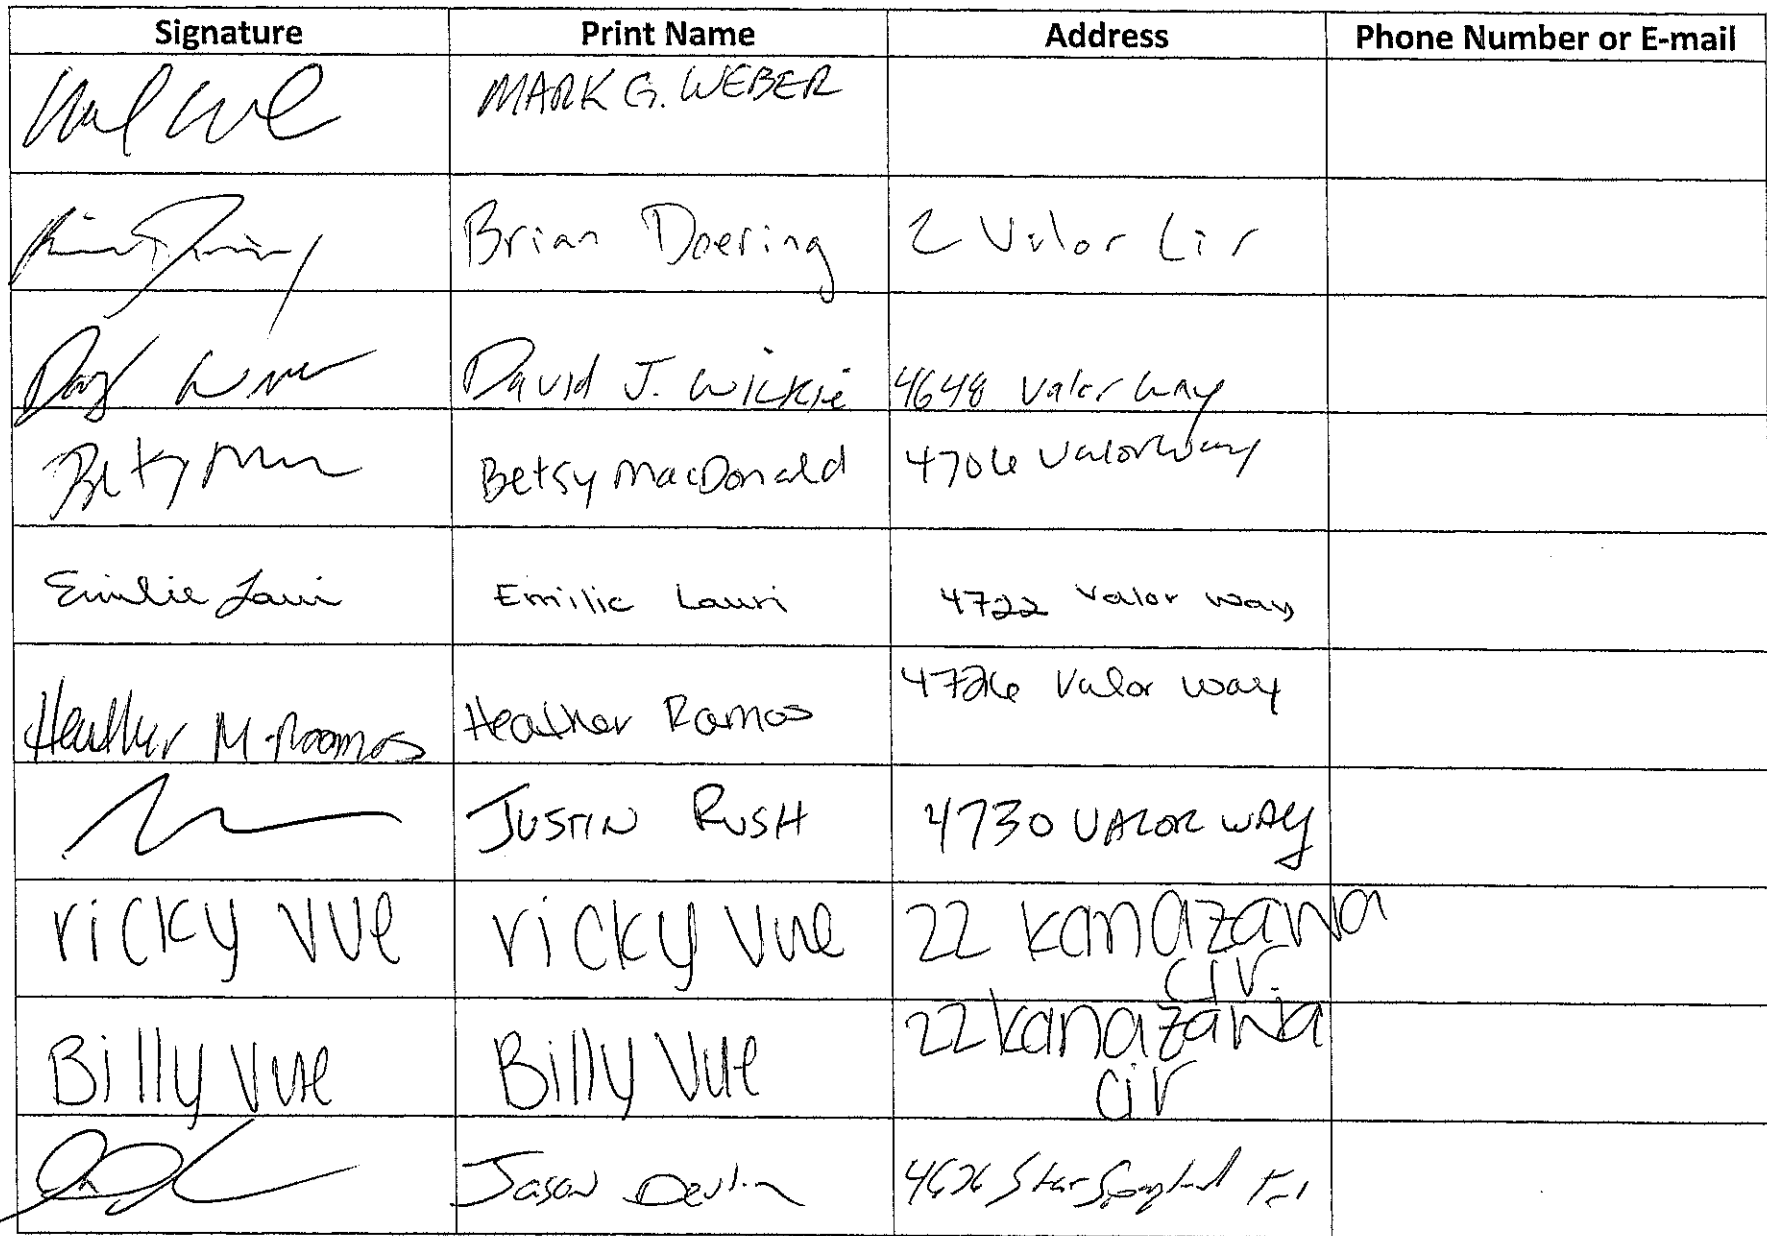 Signature Print Name Address Phone Number or E-mail
MARK G. WEBER
Brian Doering 2 Valor Cir
David J. Wickie 4648 Valor Way
Betsy MacDonald 4706 Valor Way
Emilie Lauri Emilie Lauri 4722 Valor Way
Heather M Ramos Heather Ramos 4726 Valor Way
JUSTIN RUSH 4730 VALOR WAY
ricky vue ricky vue 22 kanazawa
cir.
Billy Vue Billy Vue 22 kanazawa
cir
Jason Devlin Star Spangled